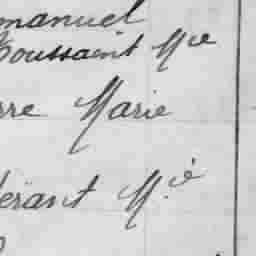 manuel
Toussaint Mie
rre Marie
érant M.ie